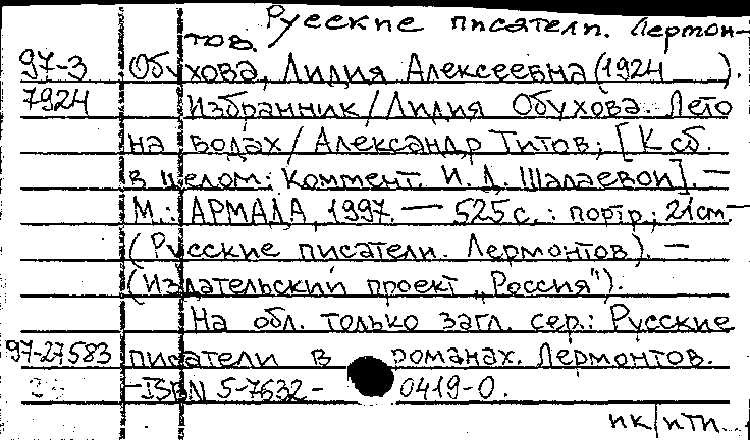 Русские писатели. Лермон-
тов.
97-3 Обухова, Лидия Алексеевна (1924 ).
7924 Избранник / Лидия Обухова. Лето
на водах / Александр Титов; [К сб.
в целом: Коммент. И. Д. Шалаевой]. —
М.: АРМАДА, 1997. — 525 с. : портр.; 21 см. —
(Русские писатели. Лермонтов). —
(Издательский проект „Россия").
На обл. только загл. сер.: Русские
97-27583 писатели в романах. Лермонтов.
ISBN 5-7632-0419-0.
пк/пти